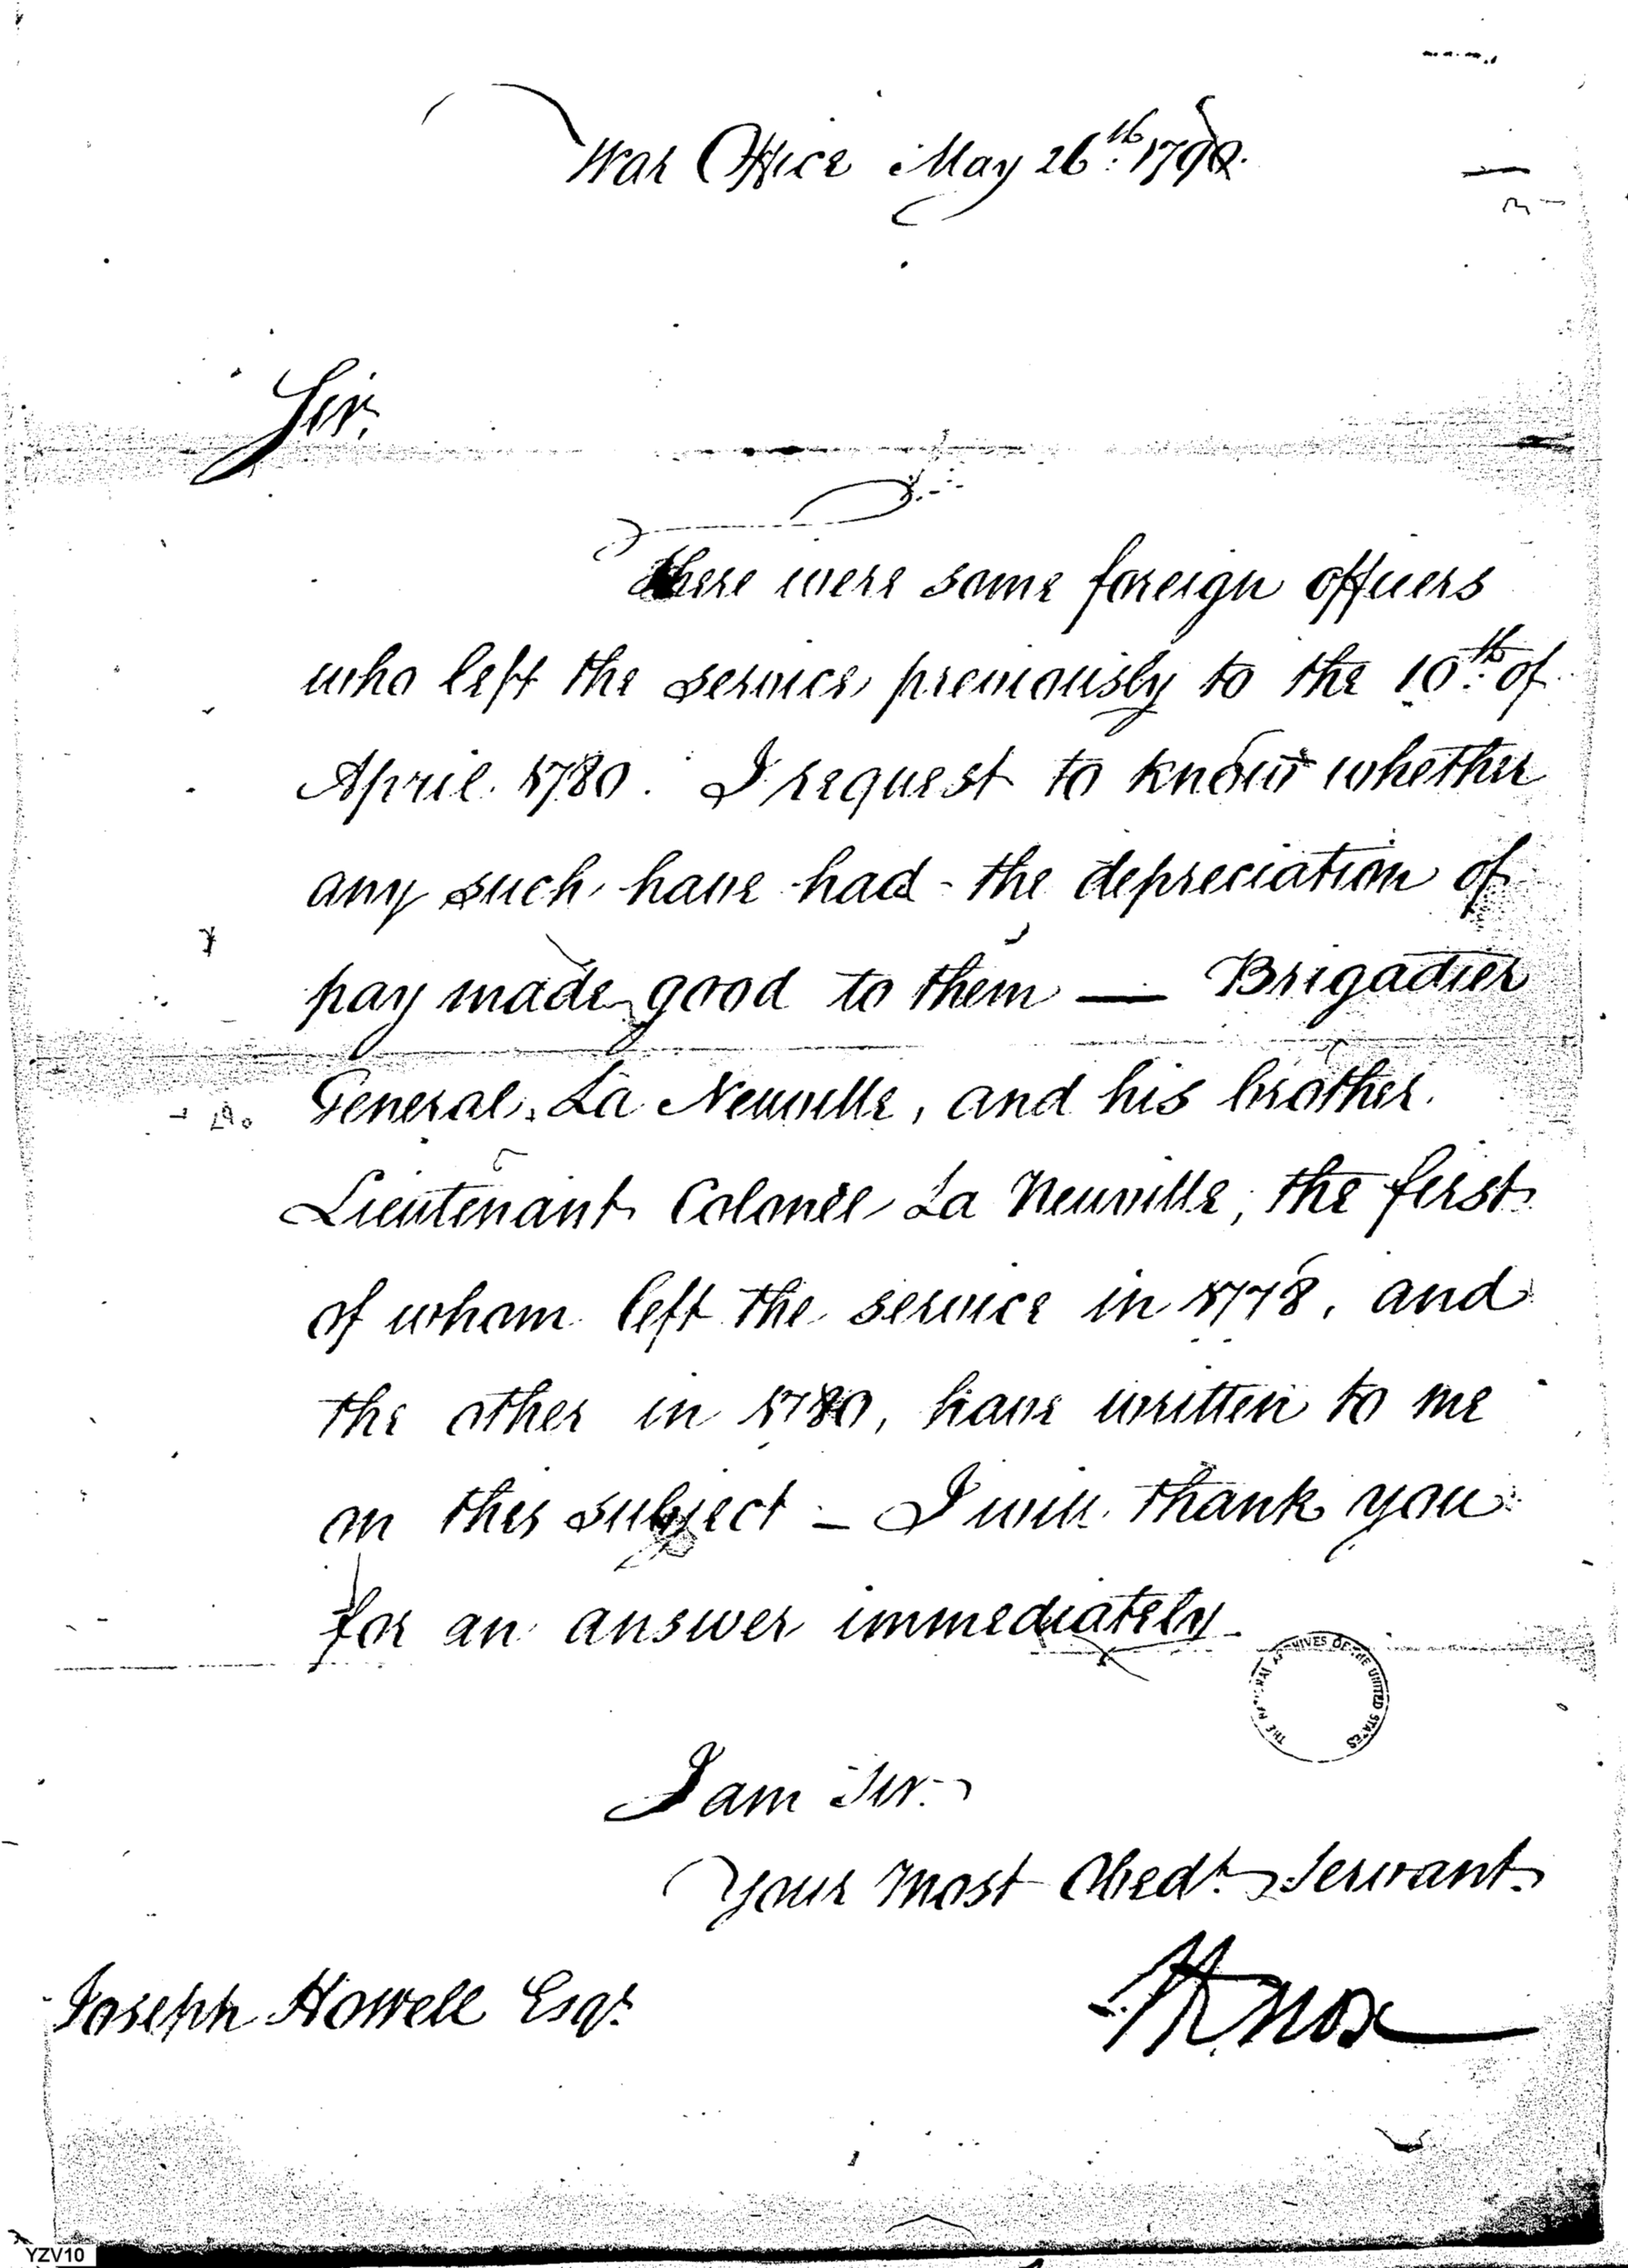 War Office May 26th. 1790.
Sir,
There were some foreign officers
who left the service previously to the 10th. of
April 1780. I request to know whether
any such have had the depreciation of
pay made good to them — Brigadier
General La Neuville, and his brother
Lieutenant Colonel La Neuville, the first
of whom left the service in 1778, and
the other in 1780, have written to me
on this subject — I will thank you
for an answer immediately.
THE NATIONAL ARCHIVES OF THE UNITED STATES
I am Sir.
Your Most Obedt. Servant.
HKnox
Joseph Howell Esqr.
YZV10